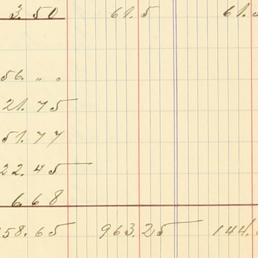 3.50 61.5 61.
56. " "
21.75
51.77
22.45
6 68
58.65 963.25 144.